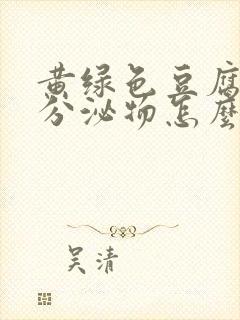 黄绿色豆腐
分泌物怎麽
吴清